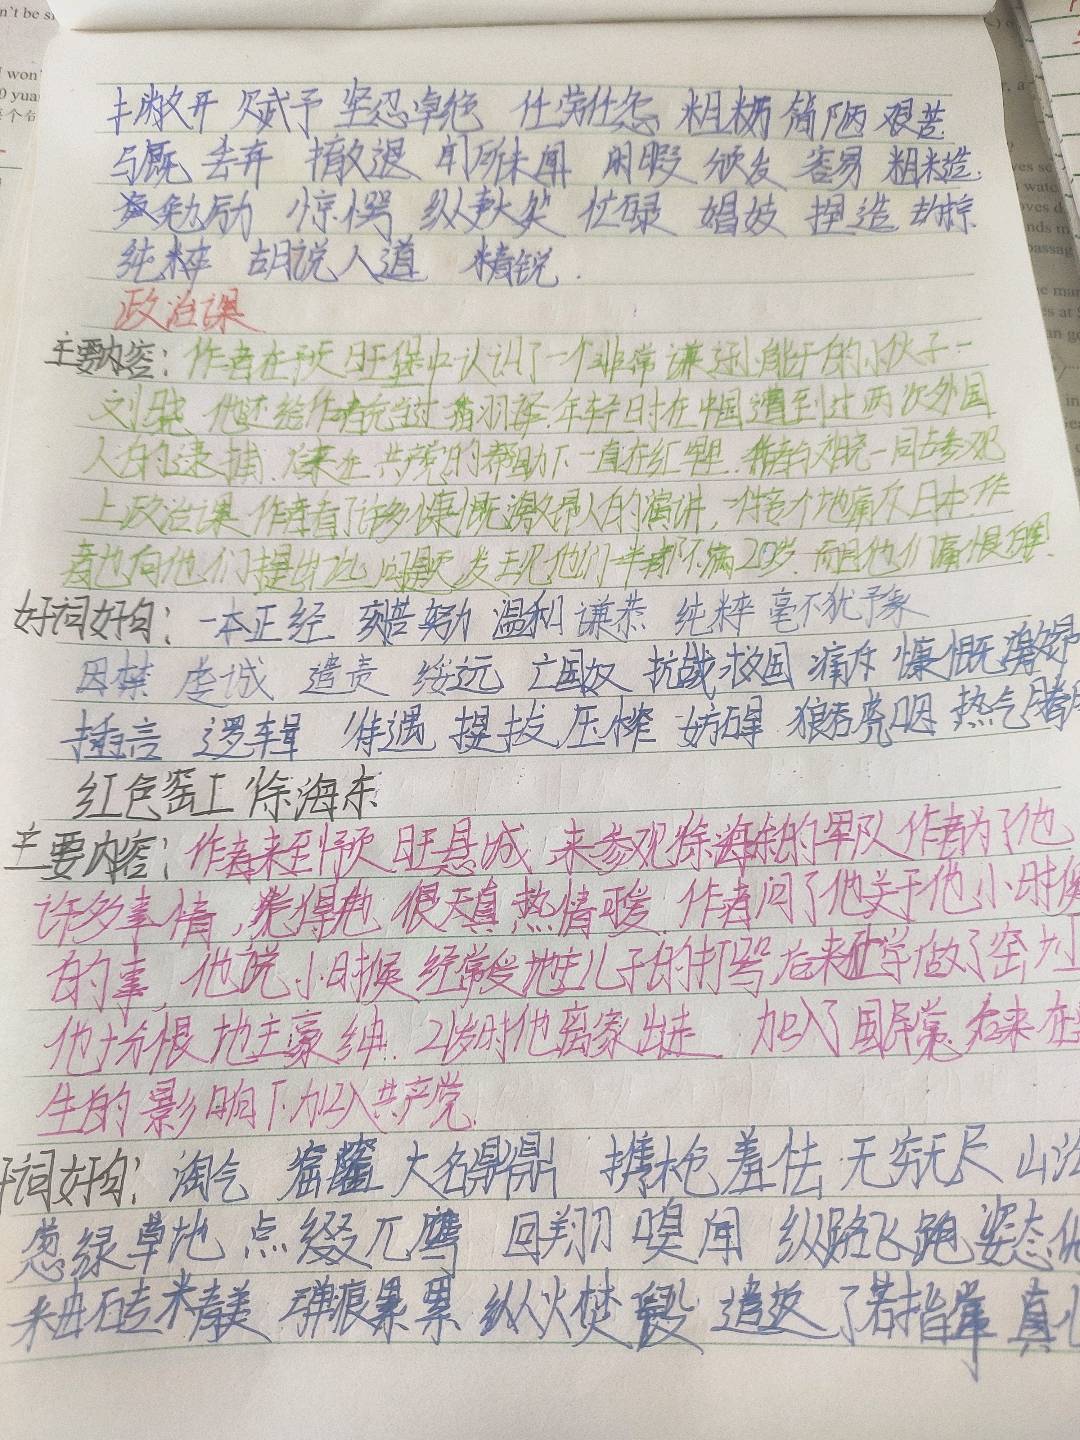 敞开 赋予 坚忍卓绝 任劳任怨 粗粝 简陋 艰苦
丢弃 撤退 闻所未闻 闲暇 颁发 容易 粗糙
勉励 惊愕 忙碌 娼妓 捏造 劫掠
纯粹 胡说八道 精锐.
政治课
主要内容: 作者在予旺堡中认识了一个非常谦逊能干的小伙子一
刘晓 他还给作者充当过翻译,年轻时在中国遭到过两次外国
人的逮捕,后来在共产党的帮助下一直在红军里. 作者与刘晓一同去参观
上政治课 作者看了许多慷慨激昂人的演讲,一个个地痛斥日本 作
者也向他们提出 问题 发现他们一半都不满20岁. 而且他们痛恨
好词好句: 一本正经 刻苦努力 温和 谦恭 纯粹 毫不犹予象
囚禁 虔诚 遣责 绥远 亡国奴 抗战救国 痛斥 慷慨激昂
插言 逻辑 待遇 提拔 压榨 妨碍 狼吞虎咽 热气腾
红色窑工徐海东
主要内容: 作者来到予旺县城 来参观徐海东的军队 作者为了他
许多事情,觉得他 很天真热情可爱. 作者问了他关于他小时候
的事, 他说小时候经常受地主儿子的打骂 后来 学做了窑
他十分恨地主豪绅. 21岁时他离家出走 加入了国民党 后来在
生的影响下加入共产党.
词好句: 淘气 大名鼎鼎 携枪 羞怯 无穷无尽 山
葱绿草地 点缀 兀鹰 回翔 嗅闻 飞跑 姿态
弹痕累累 纵火焚毁 追放 了若指掌 真